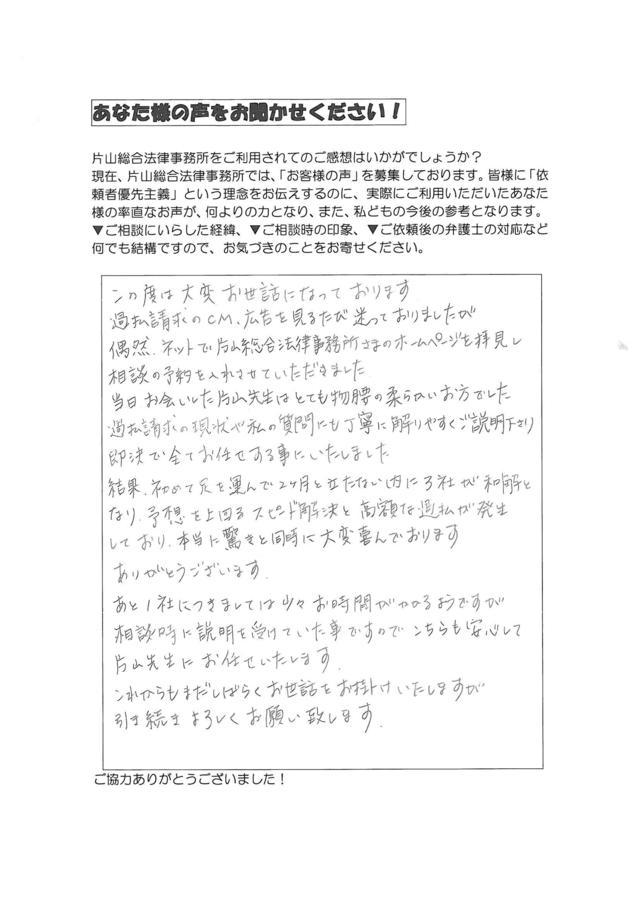 あなた様の声をお聞かせください！
片山総合法律事務所をご利用されてのご感想はいかがでしょうか？
現在、片山総合法律事務所では、「お客様の声」を募集しております。皆様に「依
頼者優先主義」という理念をお伝えするのに、実際にご利用いただいたあなた
様の率直なお声が、何よりの力となり、また、私どもの今後の参考となります。
▼ご相談にいらした経緯、▼ご相談時の印象、▼ご依頼後の弁護士の対応など
何でも結構ですので、お気づきのことをお寄せください。
この度は大変お世話になっております
過払請求のCM、広告を見るたび迷っておりましたが
偶然、ネットで片山総合法律事務所さまのホームページを拝見し
相談の予約を入れさせていただきました
当日お会いした片山先生はとても物腰の柔らかいお方でした
過払請求の現状や私の質問にも丁寧に解りやすくご説明下さり
即決で全てお任せする事にいたしました
結果、初めて足を運んで2ヶ月と立たない内に3社が和解と
なり、予想を上回るスピード解決と高額な過払が発生
しており、本当に驚きと同時に大変喜んでおります
ありがとうございます.
あと1社につきましては少々お時間がかかるようですが
相談時に説明を受けていた事ですのでこちらも安心して
片山先生にお任せいたします.
これからもまだしばらくお世話をお掛けいたしますが
引き続きよろしくお願い致します.
ご協力ありがとうございました！